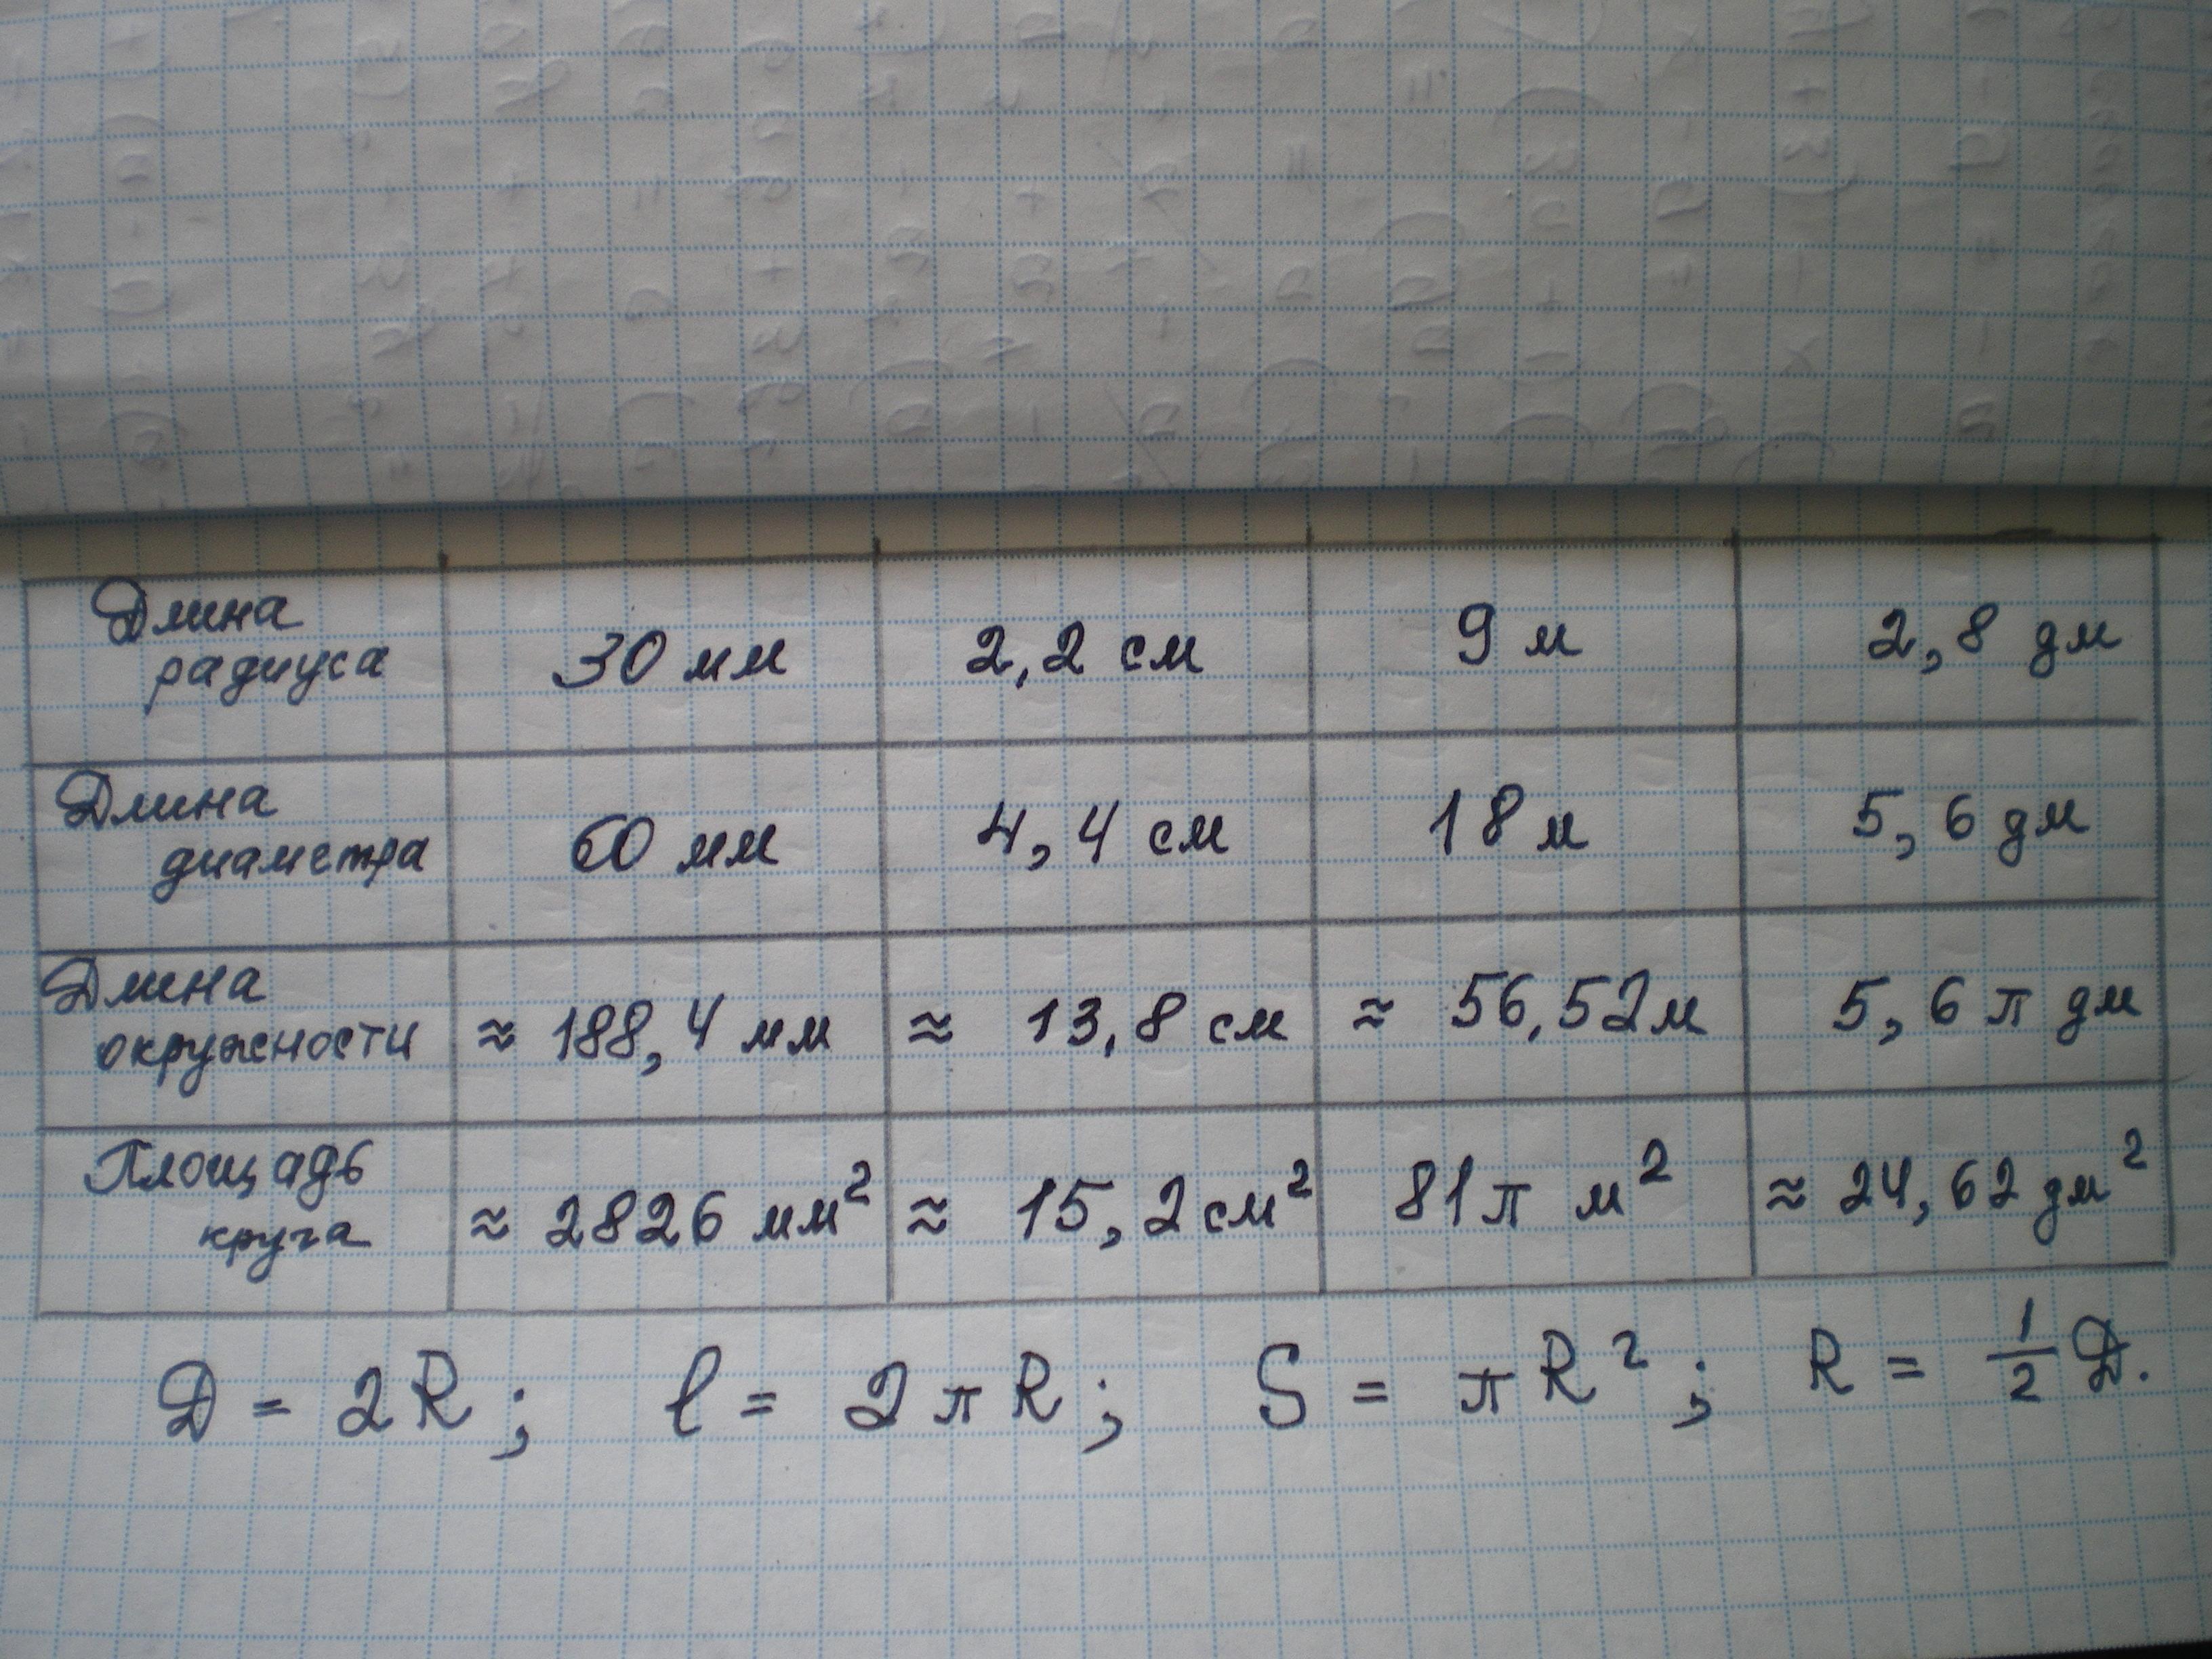 Длина
радиуса 30 мм 2,2 см 9 м 2,8 дм
Длина
диаметра 60 мм 4,4 см 18 м 5,6 дм
Длина
окружности ≈ 188,4 мм ≈ 13,8 см ≈ 56,52 м 5,6 π дм
Площадь
круга ≈ 2826 мм² ≈ 15,2 см² 81 π м² ≈ 24,62 дм²
D = 2R; l = 2πR; S = πR²; R = 1/2 D.